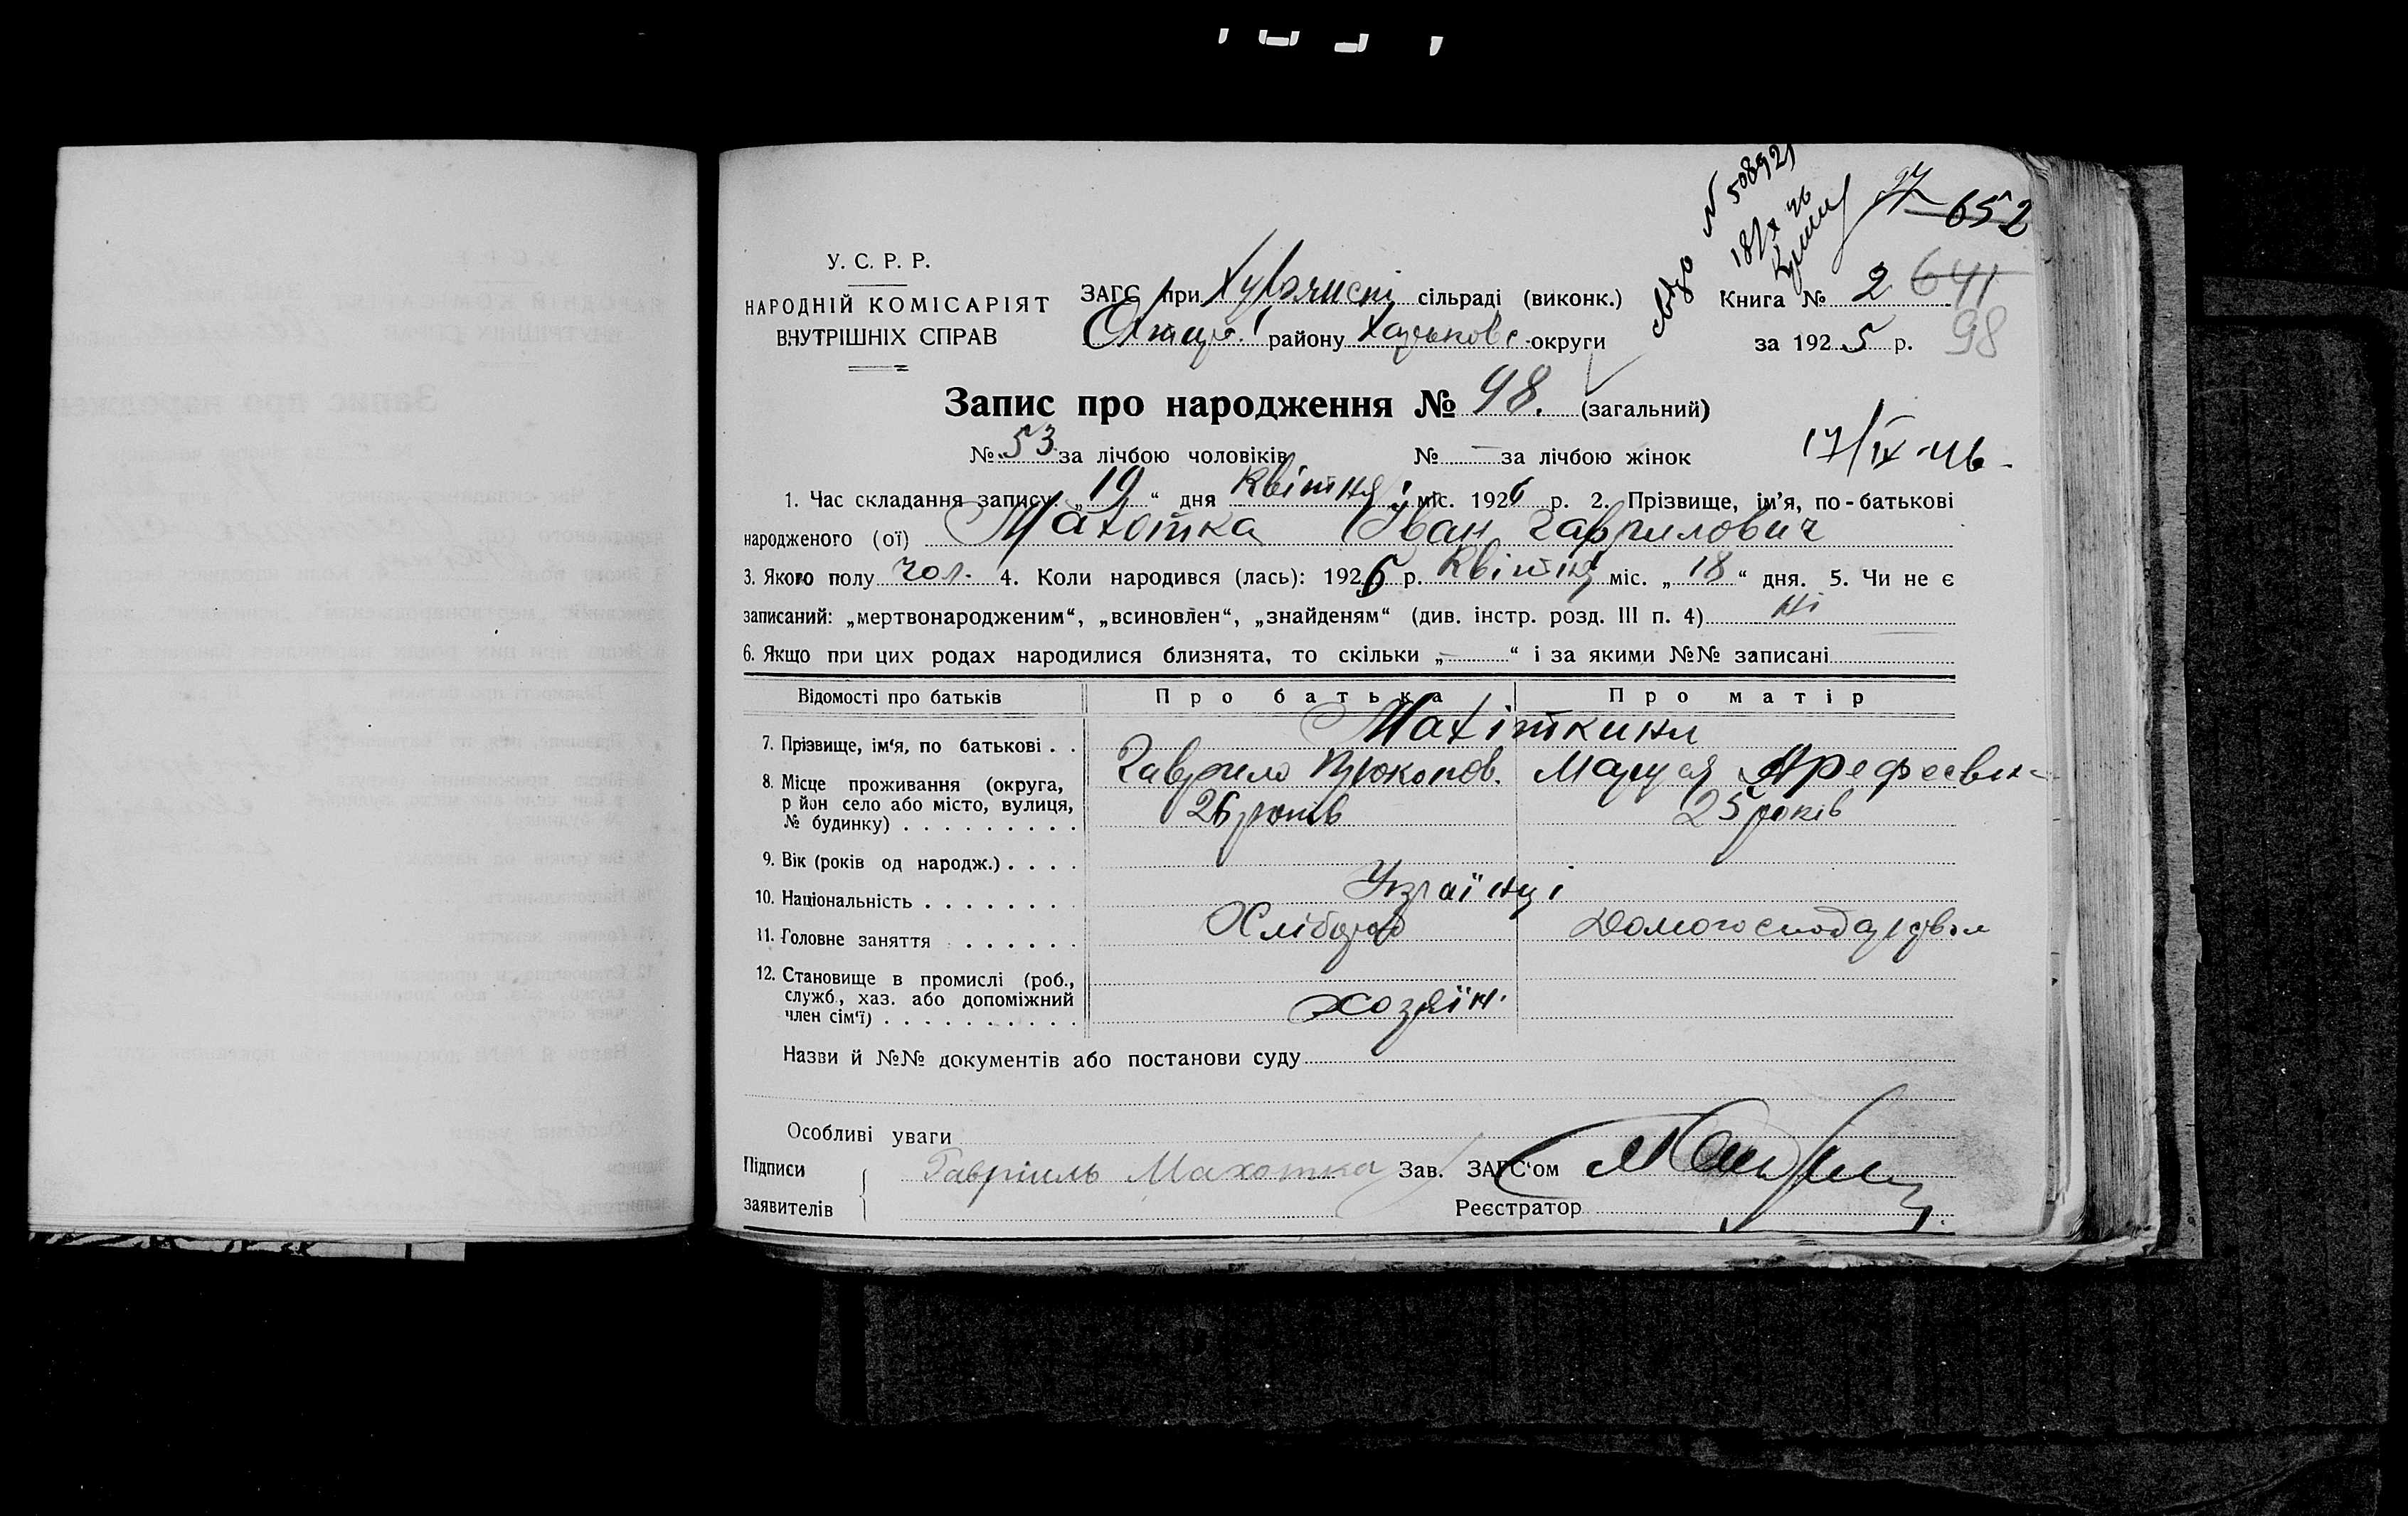 свідо № 508921
18/X 46
652
У. С. Р. Р.
НАРОДНІЙ КОМІСАРІЯТ
ВНУТРІШНІХ СПРАВ
ЗАГС при сільраді (виконк.)
Охтир. району Харьковс. округи
Книга № 2 641
за 1925 р. 98
Запис про народження № 98. (загальний)
№ 53 за лічбою чоловіків № — за лічбою жінок
17/IX-46-
1. Час складання запису „19“ дня Квітня міс. 1926 р. 2. Прізвище, ім'я, по-батькові
народженого (ої) Махотка Іван Гаврилович
3. Якого полу чол. 4. Коли народився (лась): 1926 р. Квітня міс. „18“ дня. 5. Чи не є
записаний: „мертвонародженим“, „всиновлен“, „знайденям“ (див. інстр. розд. III п. 4) Ні
6. Якщо при цих родах народилися близнята, то скільки „—“ і за якими №№ записані
Відомості про батьків Про батька Про матір
7. Прізвище, ім'я, по батькові . . Махіткини
Гаврило Прокопов. Маруся Арефеевн-
8. Місце проживання (округа,
р йон село або місто, вулиця,
№ будинку) . . . . . . . . . 26 років 25 років
9. Вік (років од народж.) . . . .
10. Національність . . . . . . . . Українці
11. Головне заняття . . . . . . Хлібороб
12. Становище в промислі (роб.,
служб., хаз. або допоміжний
член сім'ї) . . . . . . . . . . хозяїн.
Назви й №№ документів або постанови суду
Особливі уваги
Підписи
заявителів
Гавриилъ Махотка Зав. ЗАГС'ом
Реєстратор